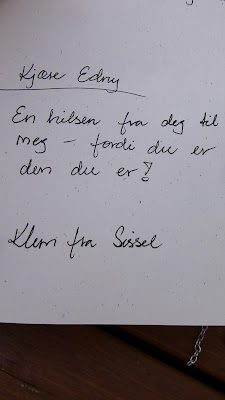 Kjære Edny
En hilsen fra deg til
meg – fordi du er
den du er!
Klem fra Sissel